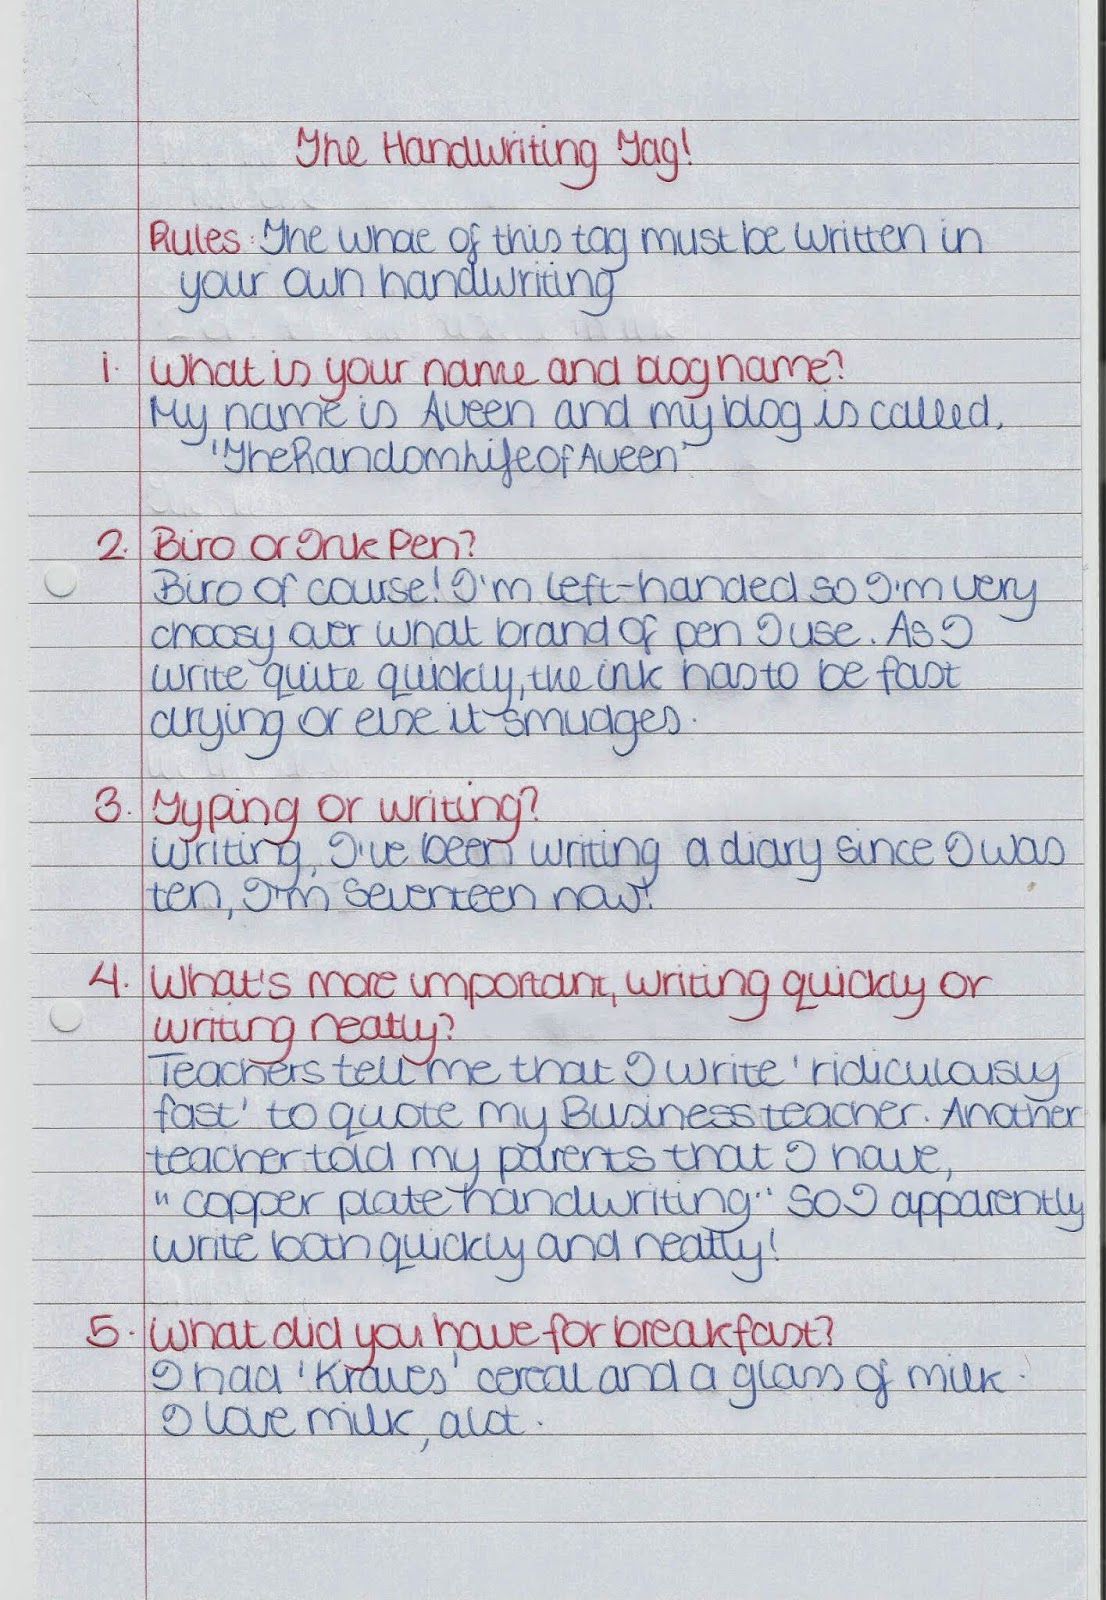 The Handwriting Tag!
Rules: The whole of this tag must be written in
your own handwriting
1. What is your name and blog name?
My name is Aveen and my blog is called,
'TheRandomLifeofAveen'
2. Biro or Ink Pen?
Biro of course! I'm left-handed so I'm very
choosy over what brand of pen I use. As I
write quite quickly, the ink has to be fast
drying or else it smudges.
3. Typing or writing?
Writing, I've been writing a diary since I was
ten, I'm seventeen now!
4. What's more important, writing quickly or
writing neatly?
Teachers tell me that I write 'ridiculously
fast' to quote my Business teacher. Another
teacher told my parents that I have,
"copper plate handwriting." So I apparently
write both quickly and neatly!
5. What did you have for breakfast?
I had 'Kraves' cereal and a glass of milk.
I love milk, alot.